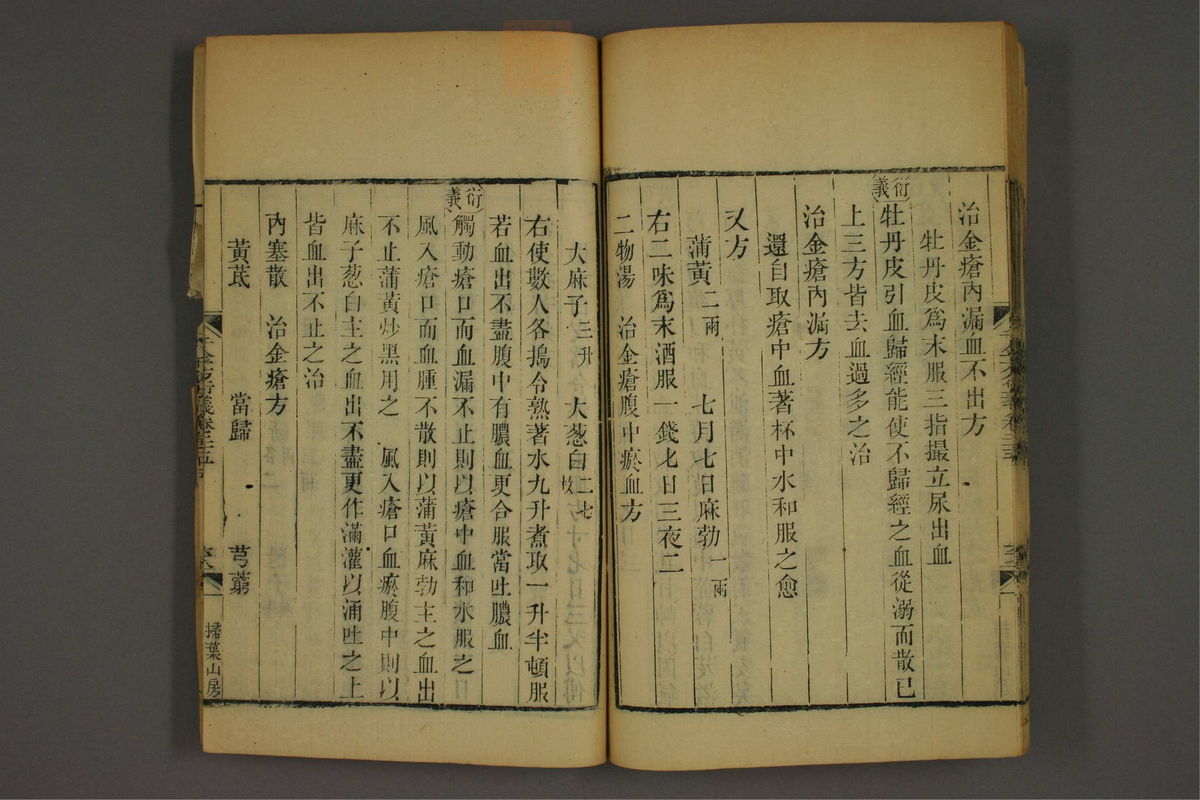 治金瘡內漏血不出方
牡丹皮爲末服三指撮立尿出血
衍義
牡丹皮引血歸經能使不歸經之血從溺而散已
上三方皆去血過多之治
治金瘡內漏方
還自取瘡中血著杯中水和服之愈
又方
蒲黃二兩 七月七日麻勃一兩
右二味爲末酒服一錢匕日三夜二
二物湯 治金瘡腹中瘀血方
大麻子三升 大葱白二七枚
右使數人各搗令熟著水九升煮取一升半頓服
若血出不盡腹中有膿血更合服當吐膿血
衍義
觸動瘡口而血漏不止則以瘡中血和水服之
風入瘡口而血腫不散則以蒲黃麻勃主之血出
不止蒲黃炒黑用之 風入瘡口血瘀腹中則以
麻子葱白主之血出不盡更作滿灌以涌吐之上
皆血出不止之治
內塞散 治金瘡方
黃芪 當歸 芎藭
千金方衍義卷二十五
掃葉山房